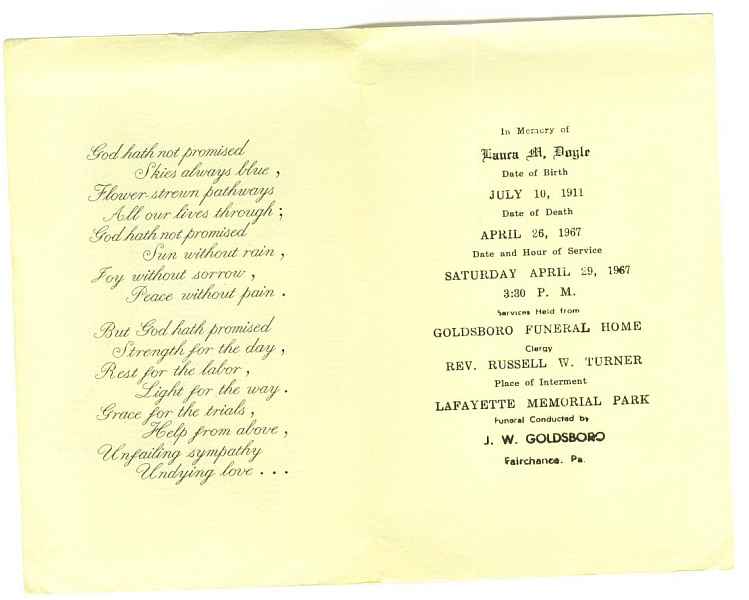 God hath not promised
Skies always blue,
Flower-strewn pathways
All our lives through;
God hath not promised
Sun without rain,
Joy without sorrow,
Peace without pain.
But God hath promised
Strength for the day,
Rest for the labor,
Light for the way.
Grace for the trials,
Help from above,
Unfailing sympathy
Undying love...
In Memory of
Laura M. Doyle
Date of Birth
JULY 10, 1911
Date of Death
APRIL 26, 1967
Date and Hour of Service
SATURDAY APRIL 29, 1967
3:30 P. M.
Services Held from
GOLDSBORO FUNERAL HOME
Clergy
REV. RUSSELL W. TURNER
Place of Interment
LAFAYETTE MEMORIAL PARK
Funeral Conducted by
J. W. GOLDSBORO
Fairchance, Pa.